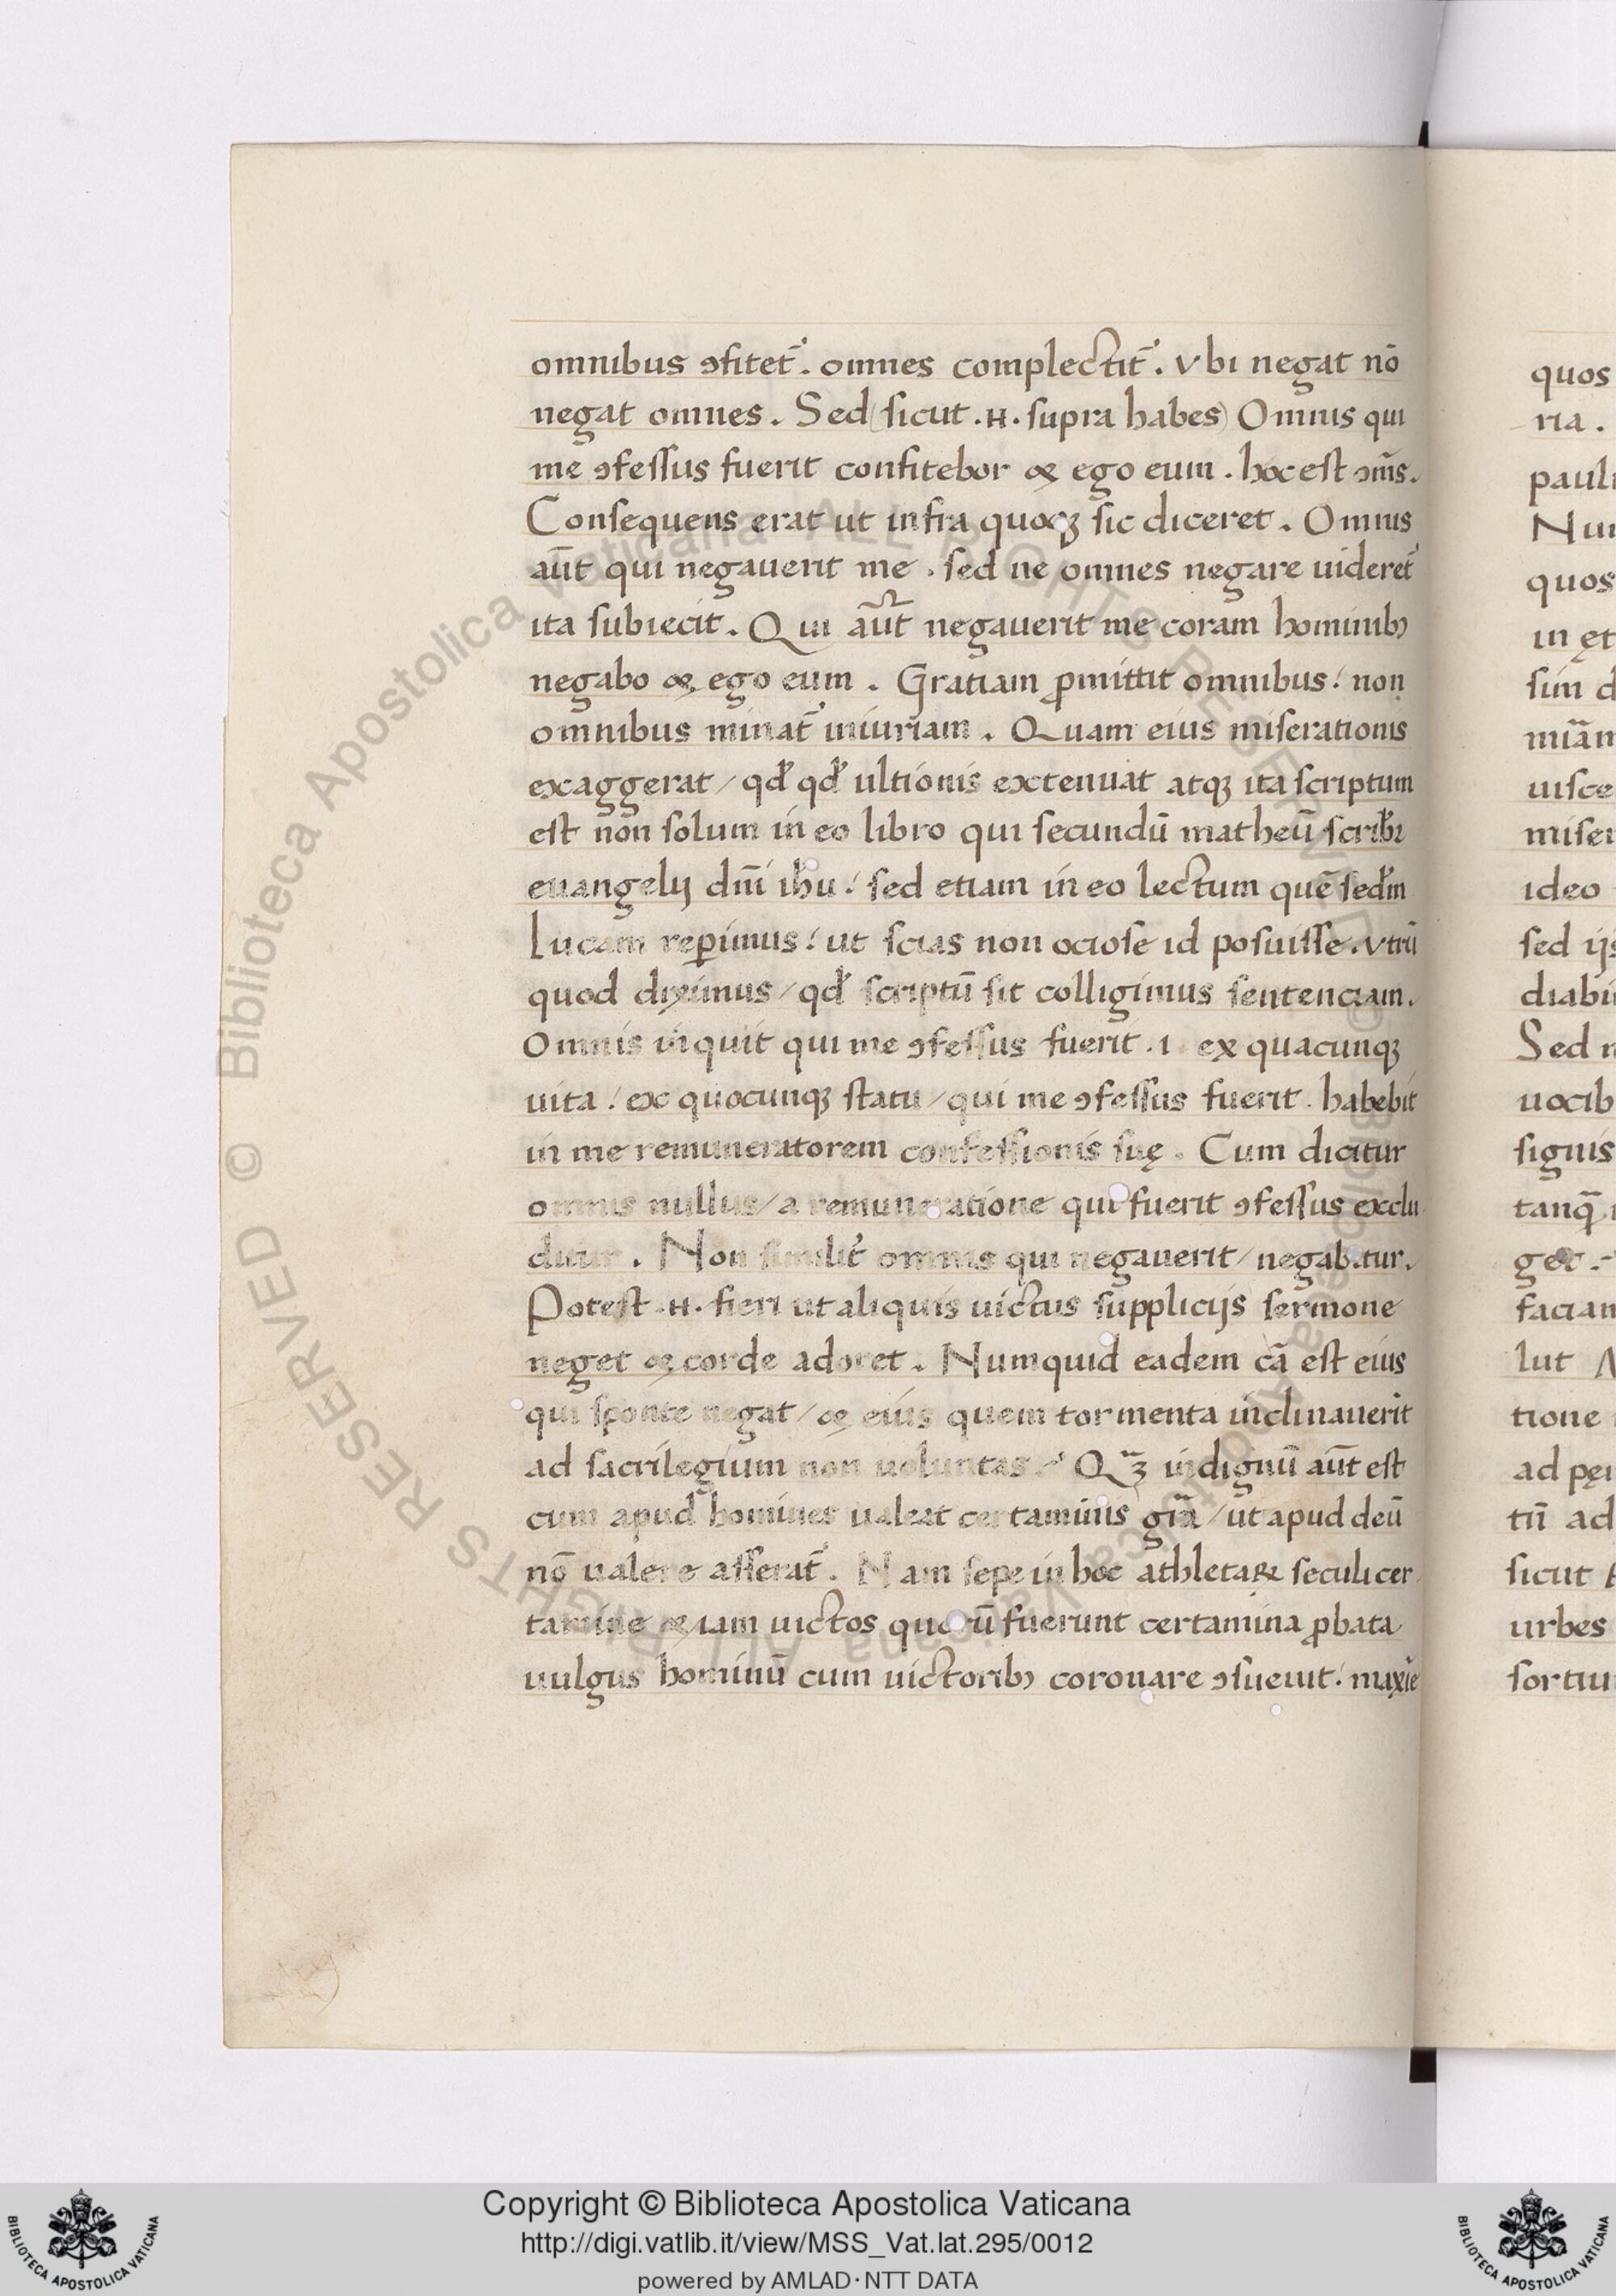 omnibus ɔfitet᷒. omnes complectit᷒. Vbi negat nō
negat omnes. Sed (sicut .H. supra habes) Omnis qui
me ɔfessus fuerit confitebor & ego eum. hoc est oīs.
Consequens erat ut infra quoqꝫ sic diceret. Omnis
aūt qui negauerit me. sed ne omnes negare uideret᷒
ita subiecit. Qui aūt negauerit me coram hominibꝰ
negabo & ego eum. Gratiam ꝓmittit omnibus: non
omnibus minat᷒ iniuriam. Quam eius miserationis
exaggerat / qđ qđ ultionis extenuat atqꝫ ita scriptum
est non solum in eo libro qui secundū matheū scribi
euangelij dn̄i ihu: sed etiam in eo lectum quē sedm
Lucam reꝑimus: ut scias non ociose id posuisse. Vtrū
quod diximus / qđ scriptū sit colligimus sentenciam.
Omnis inquit qui me ɔfessus fuerit .i. ex quacunqꝫ
uita: ex quocunqꝫ statu / qui me ɔfessus fuerit. habebit
in me remuneratorem confessionis suę. Cum dicitur
omnis nullus / a remuneratione qui fuerit ɔfessus exclu
ditur. Non similit᷒ omnis qui negauerit / negabitur.
Potest .H. fieri ut aliquis uictus supplicijs sermone
neget & corde adoret. Numquid eadem cā est eius
qui sponte negat / & eius quem tormenta inclinauerit
ad sacrilegium non uoluntas. Qꝫ̄ indignū aūt est
cum apud homines ualeat certaminis grā / ut apud deū
nō ualere asserat᷒. Nam sepe in hoc athletaꝝ seculi cer
tamine & iam uictos quorū fuerunt certamina ꝓbata
uulgus hominū cum uictoribꝰ coronare ɔsueuit: maxīe
quos
ria.
quos
sed
Sed
signis
lut
tione
tū ad
sicut
urbes
Copyright © Biblioteca Apostolica Vaticana
http://digi.vatlib.it/view/MSS_Vat.lat.295/0012
powered by AMLAD·NTT DATA
BIBLIOTECA APOSTOLICA VATICANA
BIBLIOTECA APOSTOLICA VATICANA
© Biblioteca Apostolica Vaticana ALL RIGHTS RESERVED
© Biblioteca Apostolica Vaticana ALL RIGHTS RESERVED